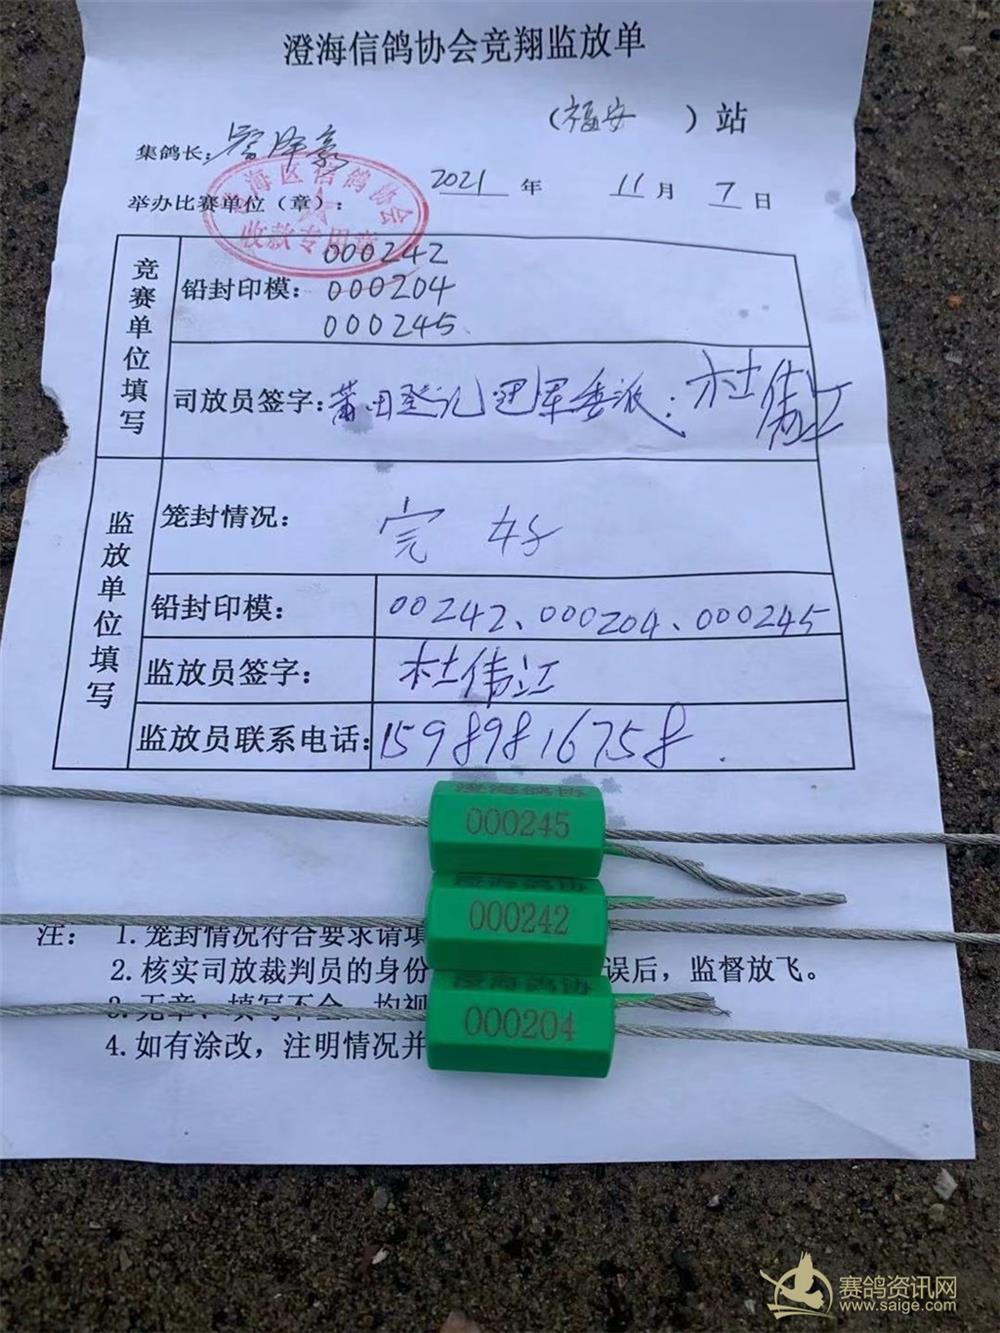 澄海信鸽协会竞翔监放单
（福安 ）站
集鸽长：
2021 年 11 月 7 日
举办比赛单位（章）：
海区信鸽协会
收款专用章
竞赛单位填写
铅封印模：
000242
000204
000245
司放员签字：莆田登记冠军委派：杜伟江
监放单位填写
笼封情况：完好
铅封印模：00242、000204、000245
监放员签字：杜伟江
监放员联系电话：15989816758
澄海鸽协
000245
澄海鸽协
000242
澄海鸽协
000204
注：1.笼封情况符合要求请填
2.核实司放裁判员的身份 误后，监督放飞。
3.无章、填写不全、均视
4.如有涂改，注明情况并
赛鸽资讯网
www.saige.com